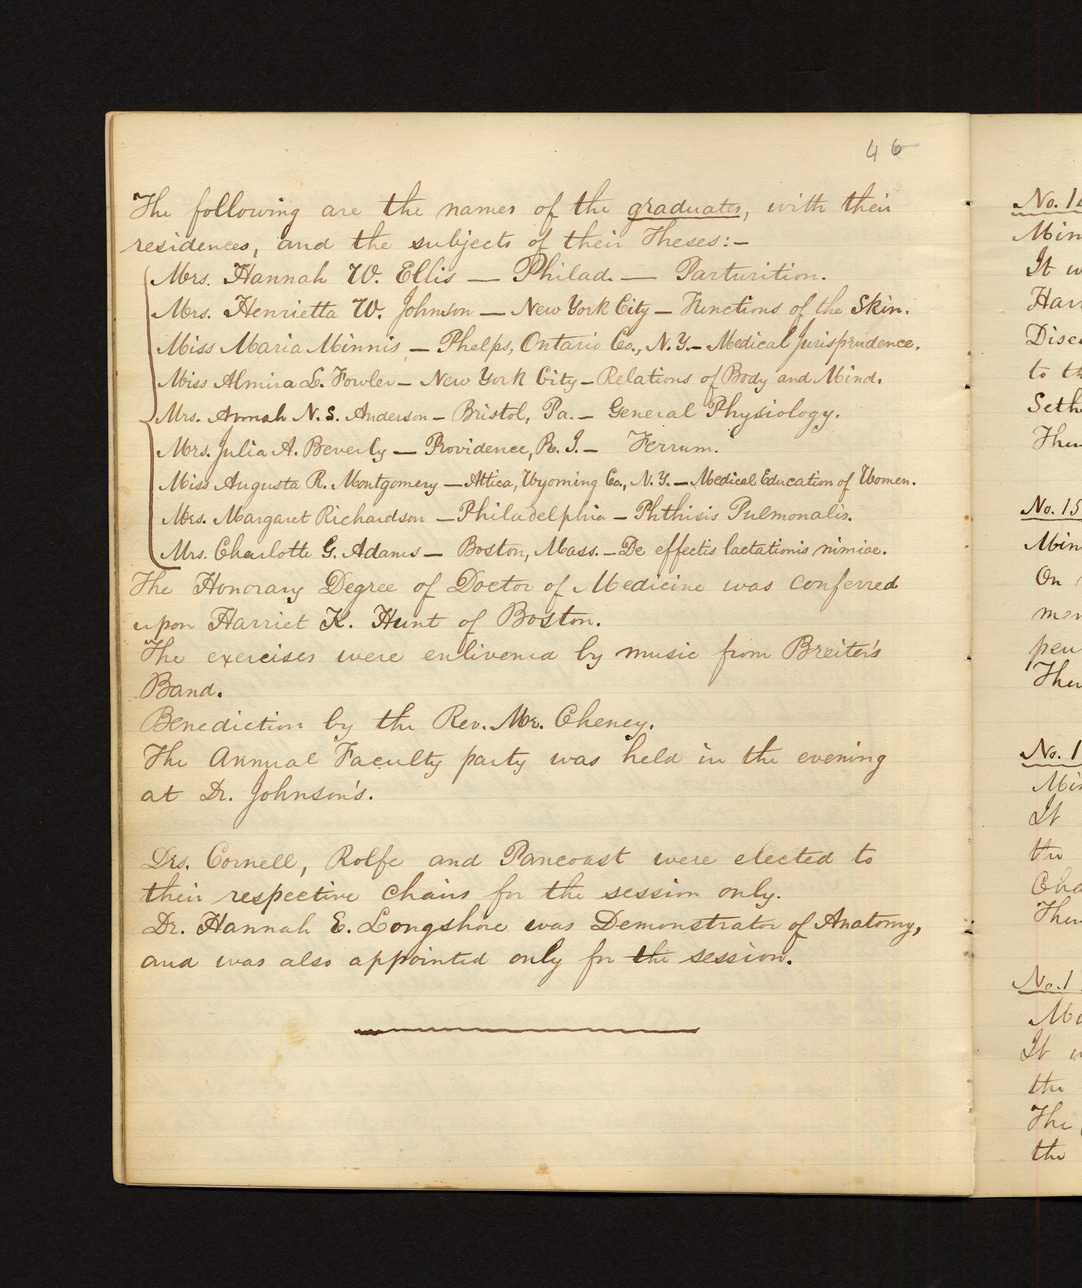 46
The following are the names of the graduates, with their
residences, and the subjects of their Theses:—
Mrs. Hannah W. Ellis — Philad. — Parturition.
Mrs. Henrietta W. Johnson — New York City — Functions of the Skin.
Miss Maria Minnis — Phelps, Ontario Co., N.Y. — Medical Jurisprudence.
Miss Almira L. Fowler — New York City — Relations of Body and Mind.
Mrs. Annah N. S. Anderson — Bristol, Pa. — General Physiology.
Mrs. Julia A. Beverly — Providence, R. I. — Ferrum.
Miss Augusta R. Montgomery — Attica, Wyoming Co., N. Y. — Medical Education of Women.
Mrs. Margaret Richardson — Philadelphia — Phthisis Pulmonalis.
Mrs. Charlotte G. Adams — Boston, Mass. — De effectis lactationis nimiae.
The Honorary Degree of Doctor of Medicine was conferred
upon Harriet K. Hunt of Boston.
The exercises were enlivened by music from Breiter's
Band.
Benediction by the Rev. Mr. Cheney.
The Annual Faculty party was held in the evening
at Dr. Johnson's.
Drs. Cornell, Rolfe and Pancoast were elected to
their respective chairs for the session only.
Dr. Hannah E. Longshore was Demonstrator of Anatomy,
and was also appointed only for the session.
No.
It
Harr
to th
Seth
No. 15
On
No. 1
It
the
No. 1
It
the
The
the